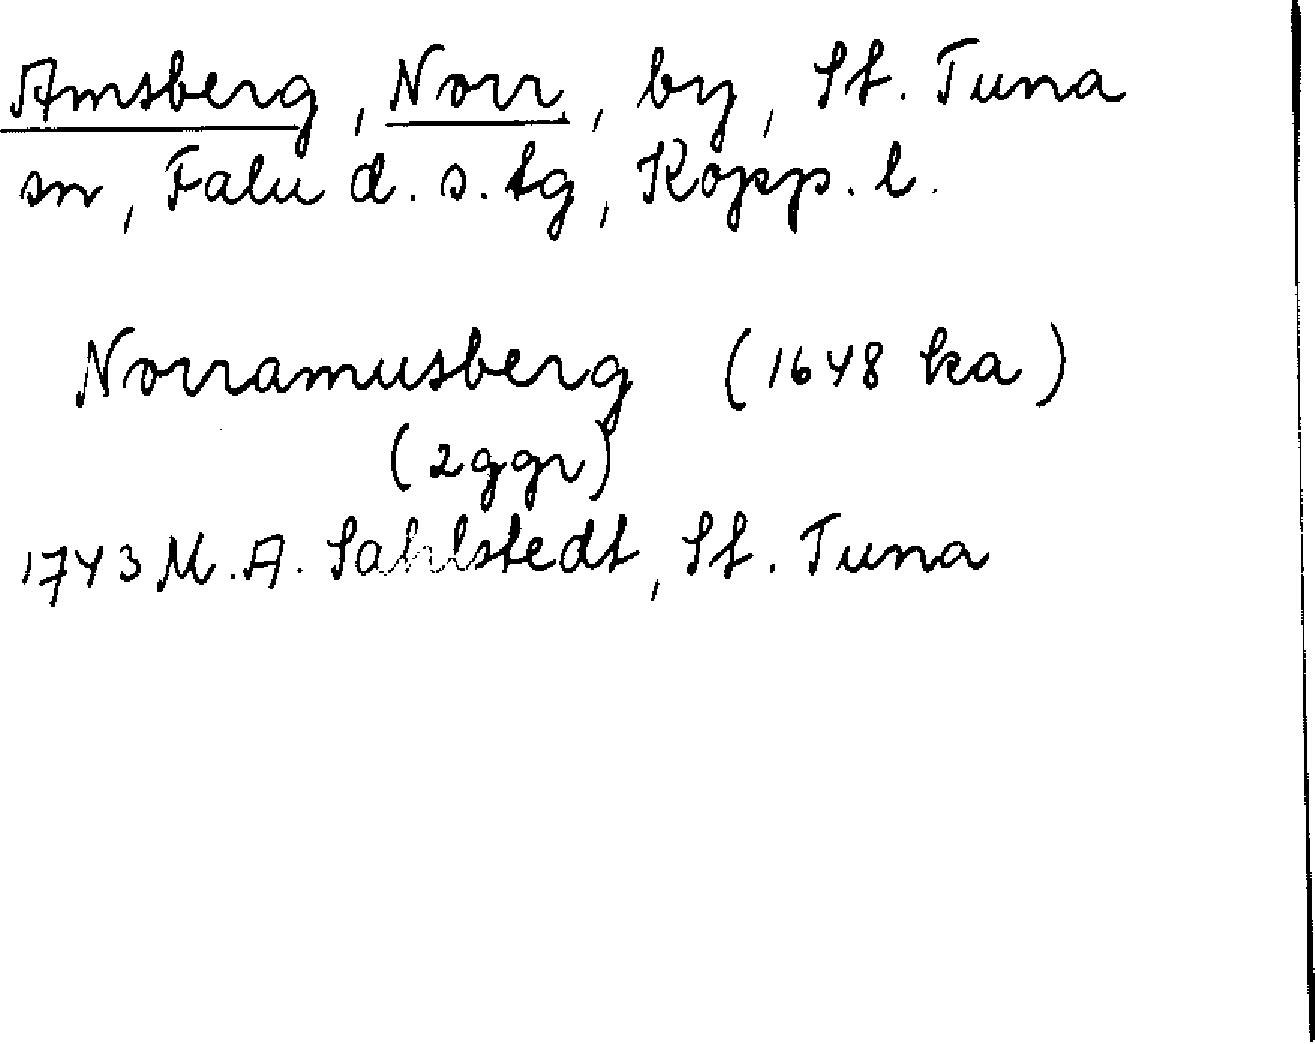 Amsberg, Norr, by, St. Tuna
sn, Falu d. s. tg, Kopp. l.
Norramusberg (1648 ka)
(2ggr)
1743 M. A. Sahlstedt, St. Tuna